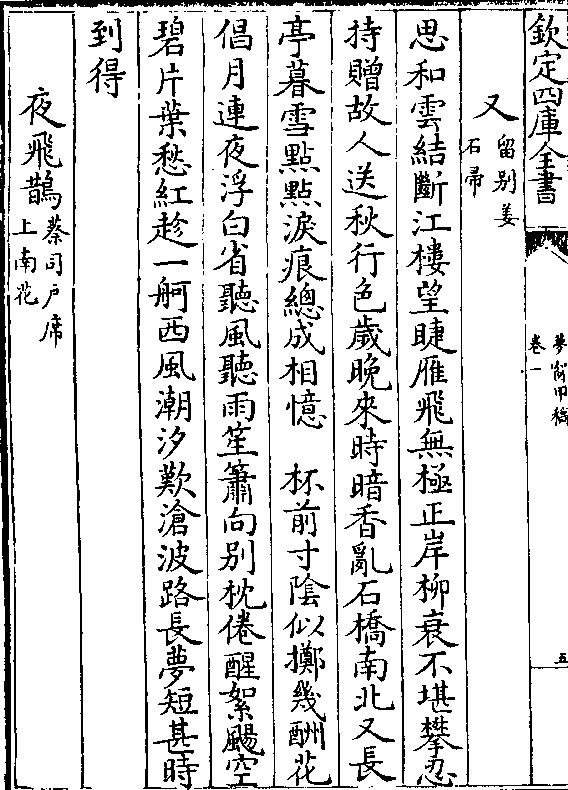 欽定四庫全書
夢窗甲稿
卷一
五
又
留别姜
石帚
思和雲結斷江樓望睫雁飛無極正岸柳衰不堪攀忍
持贈故人送秋行色歲晩來時暗香亂石橋南北又長
亭暮雪點點淚痕總成相憶　杯前寸陰似擲幾酬花
倡月連夜浮白省聽風聽雨笙簫向别枕倦醒絮颺空
碧片葉愁紅趁一舸西風潮汐歎滄波路長夢短甚時
到得
夜飛鵲
蔡司戶席
上南花